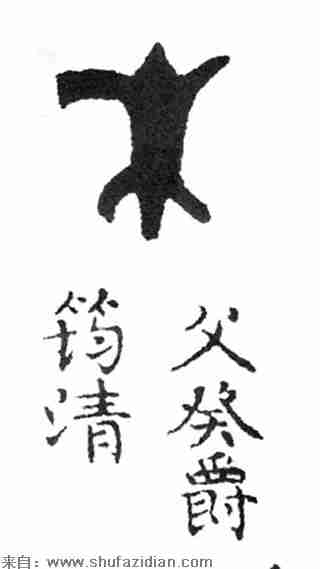 父癸爵
筠清
来自：www.shufazidian.com